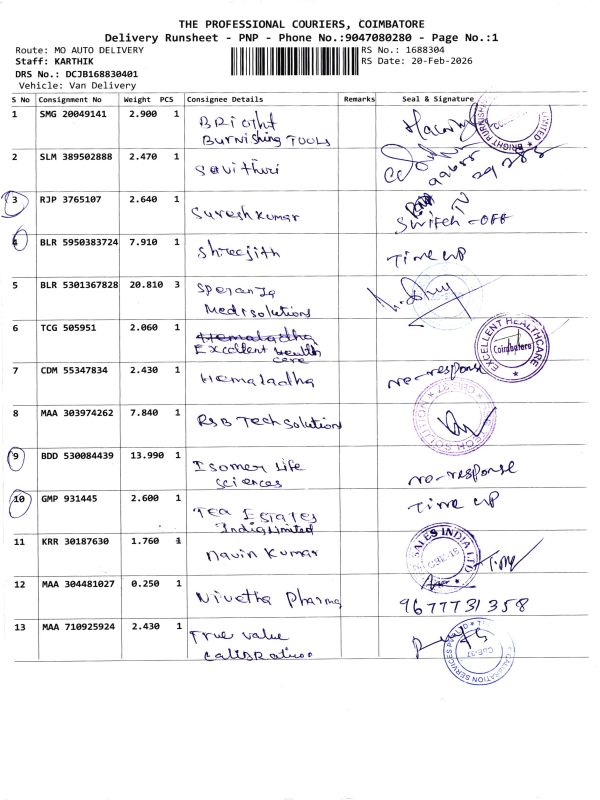 THE PROFESSIONAL COURIERS, COIMBATORE
Delivery Runsheet - PNP - Phone No.:9047080280 - Page No.:1
Route: MO AUTO DELIVERY
RS No.: 1688304
Staff: KARTHIK
RS Date: 20-Feb-2026
DRS No.: DCJB168830401
Vehicle: Van Delivery
S No Consignment No Weight PCS Consignee Details Remarks Seal & Signature
1 SMG 20049141 2.900 1 Bright
Burnishing TOOLS
2 SLM 389502888 2.470 1 Savithiri
3 RJP 3765107 2.640 1 Sureshkumar Switch-OFF
4 BLR 5950383724 7.910 1 Shreejith Time up
5 BLR 5301367828 20.810 3 Speranza
Medisolutions
6 TCG 505951 2.060 1 Hemaladha
Excellent Health
care
EXCELLENT HEALTHCARE
Coimbatore
7 CDM 55347834 2.430 1 Hemaladha no-response
8 MAA 303974262 7.840 1 RSB Tech Solution
9 BDD 530084439 13.990 1 Isomer Life
Sciences no-response
10 GMP 931445 2.600 1 Tea Estates
India Limited Time up
11 KRR 30187630 1.760 1 Navin Kumar
SALES INDIA LTD
12 MAA 304481027 0.250 1 Nivetha Pharma 9677731358
13 MAA 710925924 2.430 1 True value
Calibration